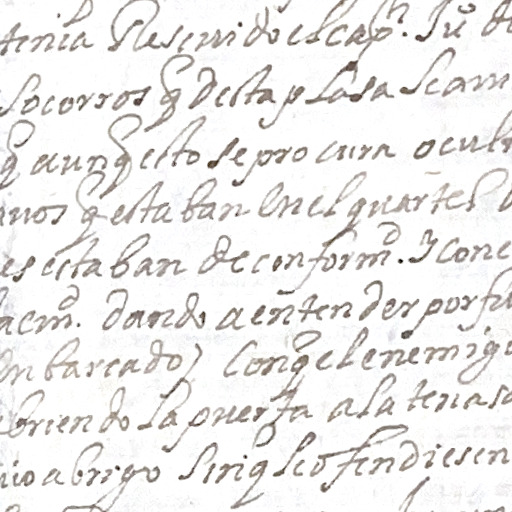 tenia Reseuido el cap.n Ju.o de
socorros q desta plasa se am
q aunq esto se procura ocult
auos q estaban en el quartel
es estaban de conform.d. Y con e
acm.d. dando a entender por fu
enbarcado) Conq el enemigo
briendo la puerta a la tenasa
uio abrigo sin q le ofendiesen